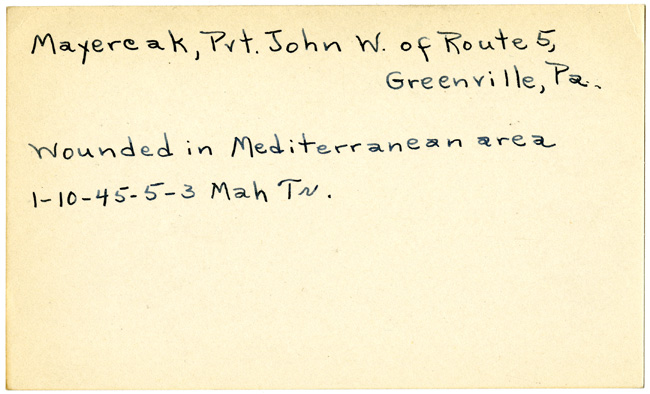 Mayercak, Pvt. John W. of Route 5,
Greenville, Pa.
Wounded in Mediterranean area
1-10-45-5-3 Mah Tr.